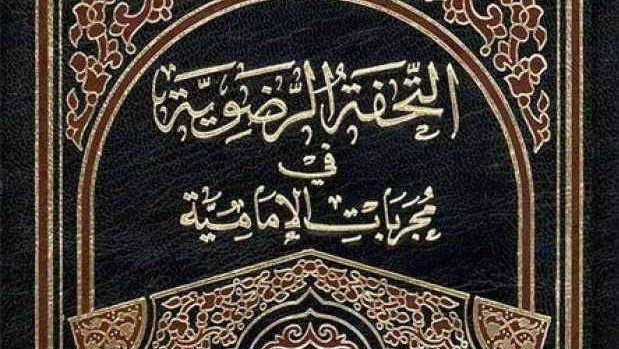 التُّحْفَةُ الرَّضَوِيَّة
فِي
مُجَرَّبَاتِ الإِمَامِيَّة